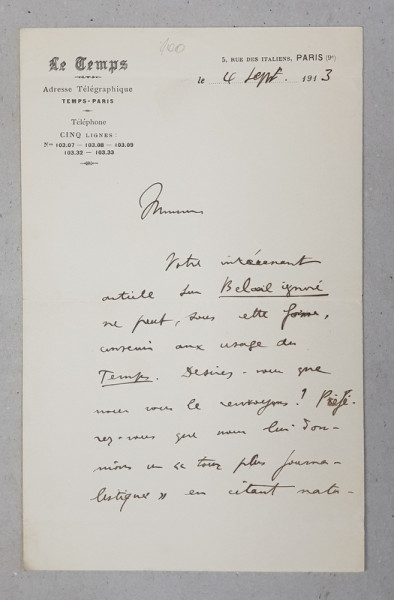 100
Le Temps
Adresse Télégraphique
TEMPS-PARIS
Téléphone
CINQ LIGNES :
Nos 103.07 — 103.08 — 103.09
103.32 — 103.33
5, RUE DES ITALIENS, PARIS (9e)
le 4 Sept. 1913
Monsieur
Votre intéressant
article sur Belœil ignoré
ne peut, sous cette forme,
convenir aux usages du
Temps. Désirez-vous que
nous vous le renvoyions ? Préfé-
rez-vous que nous lui don-
nions un « tour plus journa-
listique » en citant natu-